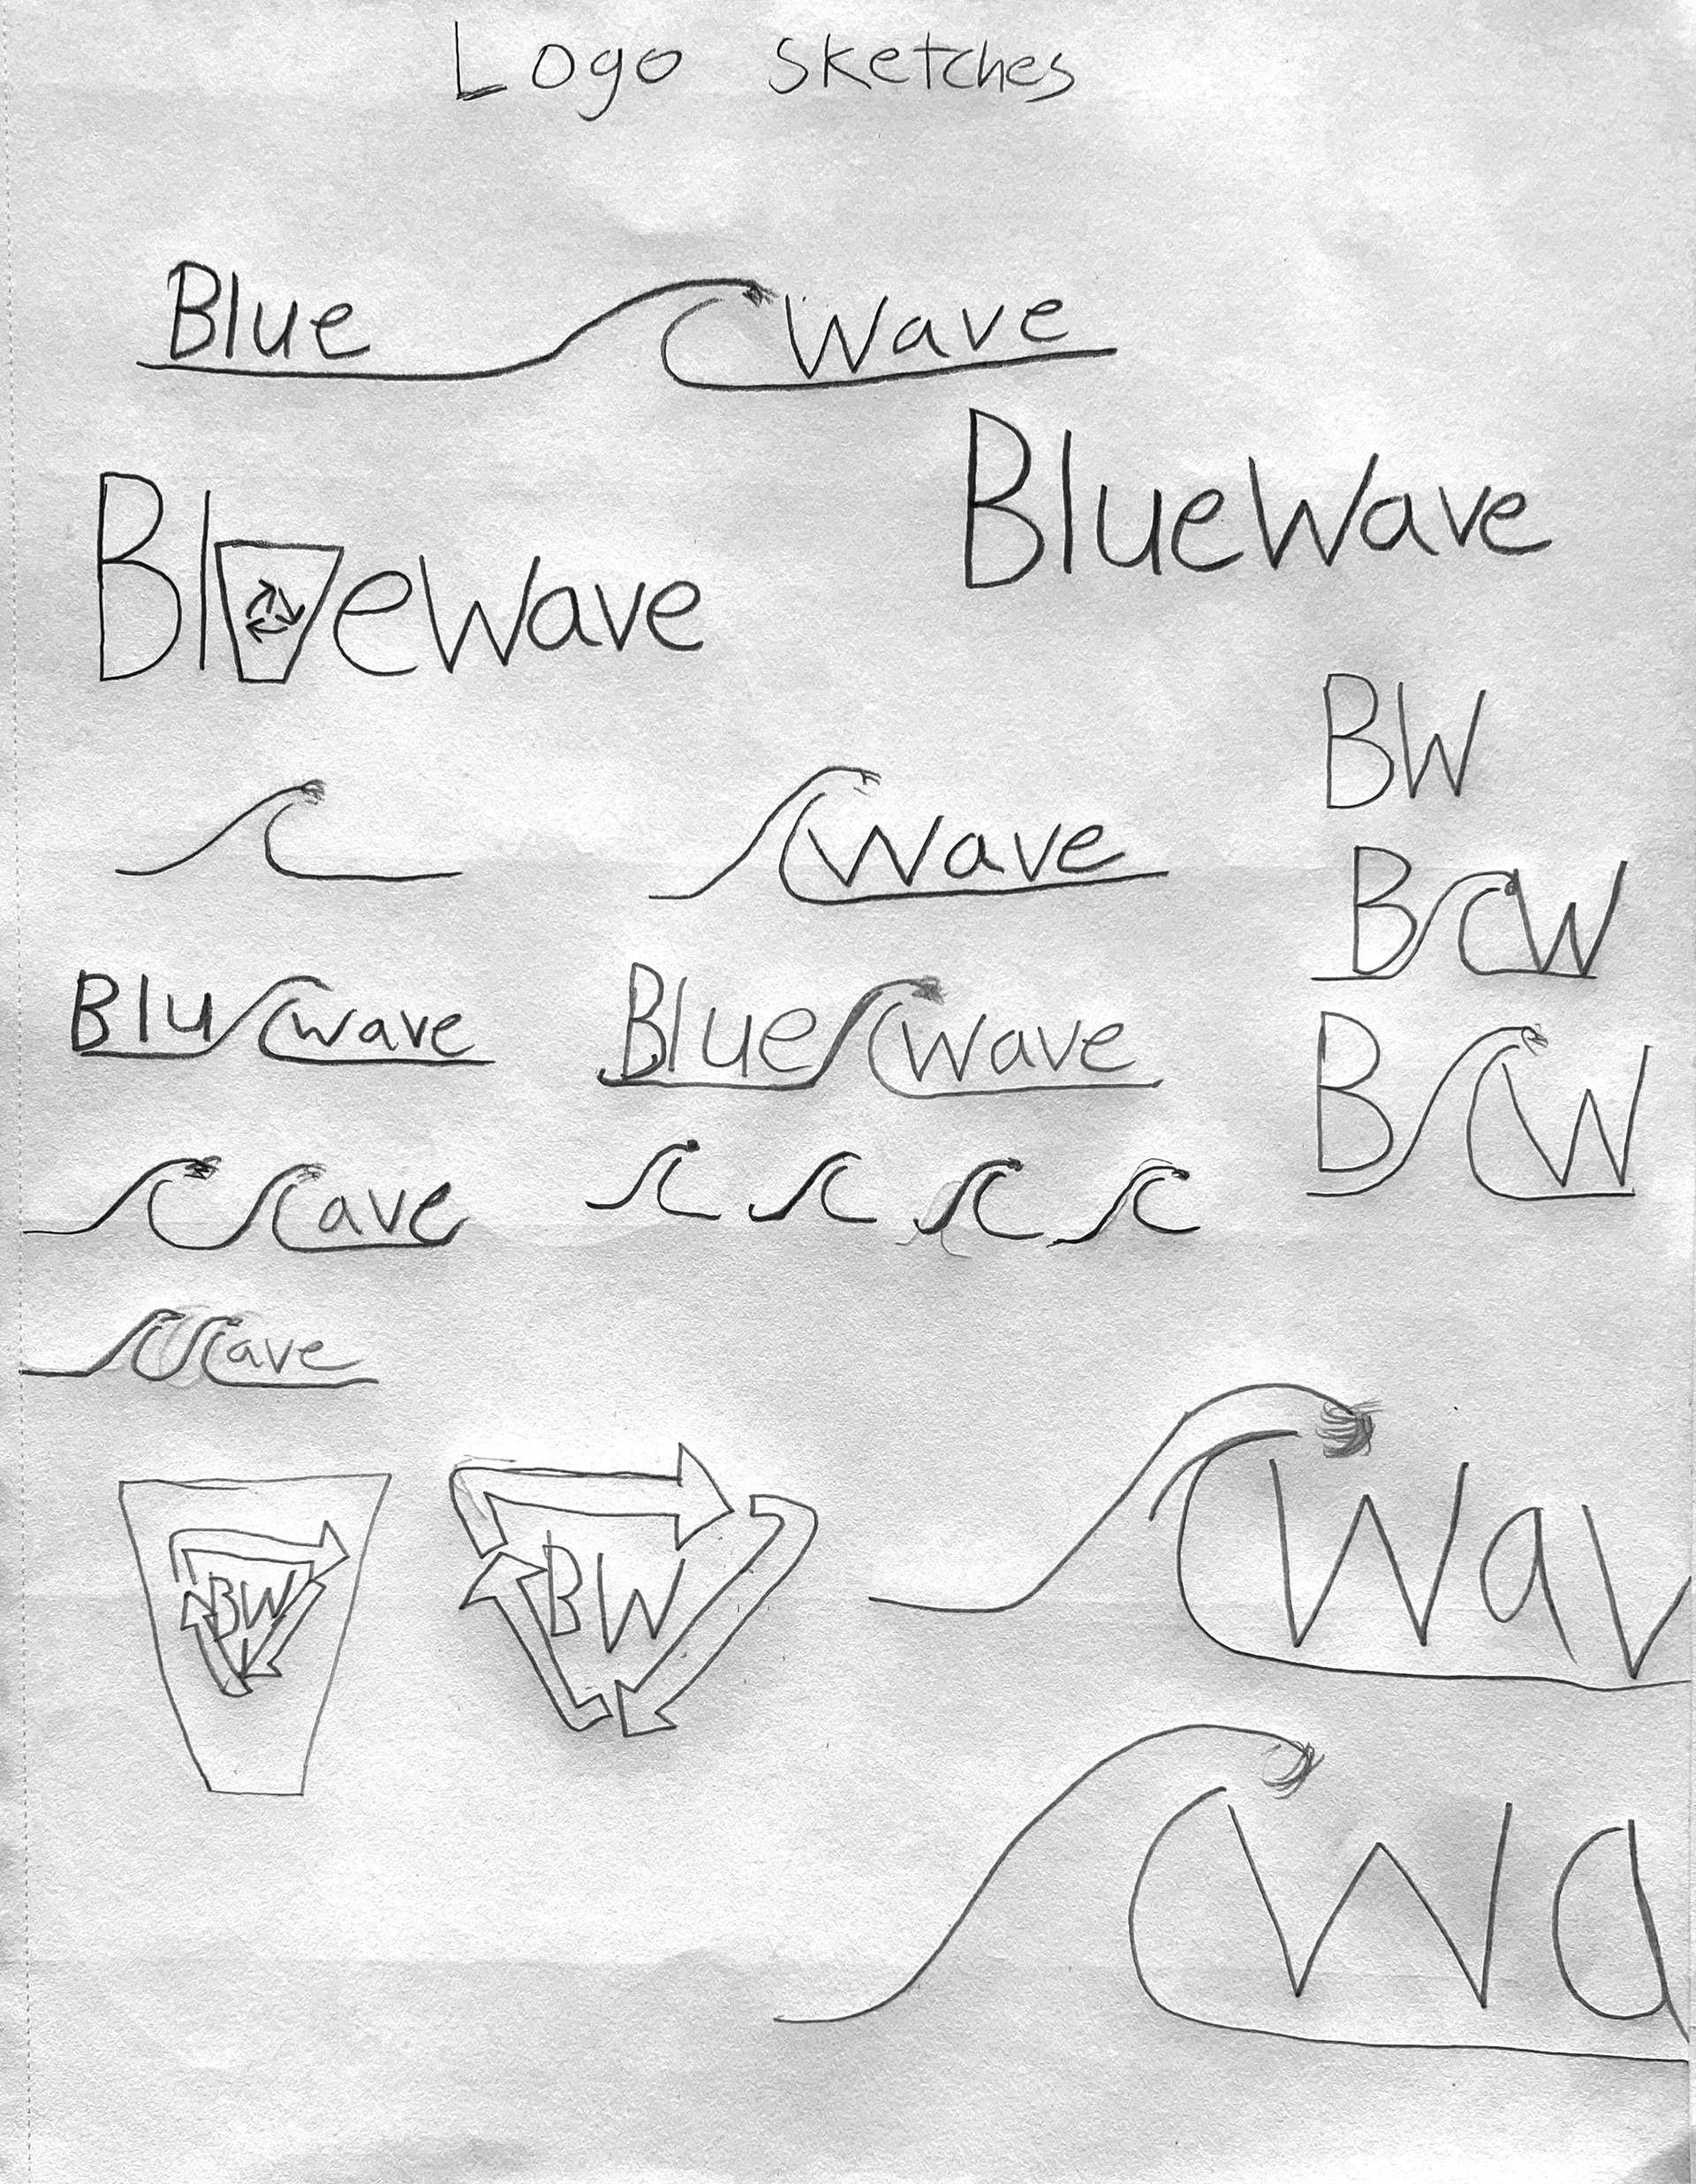 Logo sketches
Blue Wave
BlueWave
Bl ewave
BW
Wave
B W
Blu wave
Blue wave
B W
ave
ave
BW
BW
Wav
Wa